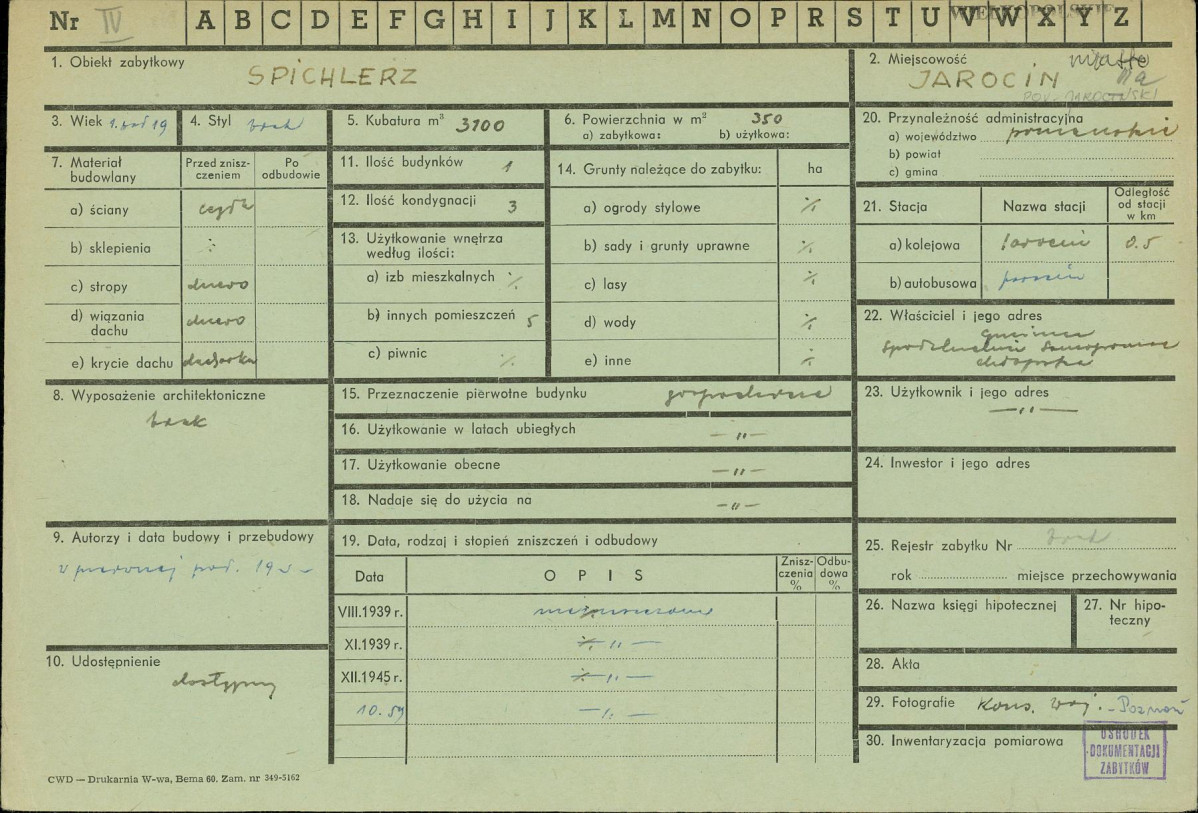 Nr IV A B C D E F G H I J K L M N O P R S T U V W X Y Z
WIELKOPOLSKIE
1. Obiekt zabytkowy SPICHLERZ
2. Miejscowość miasto
JAROCIN
POW. JAROCIŃSKI
3. Wiek 1. poł 19
4. Styl brak
5. Kubatura m³ 3100
6. Powierzchnia w m² 350
a) zabytkowa: b) użytkowa:
20. Przynależność administracyjna
a) województwo poznańskie
b) powiat
c) gmina
7. Materiał budowlany
Przed znisz-
czeniem
Po
odbudowie
a) ściany cegła
b) sklepienia ./.
c) stropy drewno
d) wiązania
dachu drewno
e) krycie dachu dachówka
11. Ilość budynków 1
12. Ilość kondygnacji 3
13. Użytkowanie wnętrza
według ilości:
a) izb mieszkalnych ./.
b) innych pomieszczeń 5
c) piwnic ./.
14. Grunty należące do zabytku: ha
a) ogrody stylowe ./.
b) sady i grunty uprawne ./.
c) lasy ./.
d) wody ./.
e) inne ./.
21. Stacja Nazwa stacji
Odległość
od stacji
w km
a) kolejowa Jarocin 0.5
b) autobusowa Jarocin
22. Właściciel i jego adres
Gminna
Spółdzielnia Samopomoc
chłopska
8. Wyposażenie architektoniczne
brak
15. Przeznaczenie pierwotne budynku gospodarcze
16. Użytkowanie w latach ubiegłych —"—
17. Użytkowanie obecne —"—
18. Nadaje się do użycia na —"—
23. Użytkownik i jego adres
—"—
24. Inwestor i jego adres
9. Autorzy i data budowy i przebudowy
w pierwszej poł. 19
10. Udostępnienie
dostępny
19. Data, rodzaj i stopień zniszczeń i odbudowy
Data OPIS
Znisz-
czenia
%
Odbu-
dowa
%
VIII.1939 r. niezniszczone
XI.1939 r. —"—
XII.1945 r. —"—
10.59 —"—
25. Rejestr zabytku Nr brak
rok miejsce przechowywania
26. Nazwa księgi hipotecznej
27. Nr hipo-
teczny
28. Akta
29. Fotografie Kons. woj. - Poznań
30. Inwentaryzacja pomiarowa
OŚRODEK
DOKUMENTACJI
ZABYTKÓW
CWD — Drukarnia W-wa, Bema 60. Zam. nr 349-5162